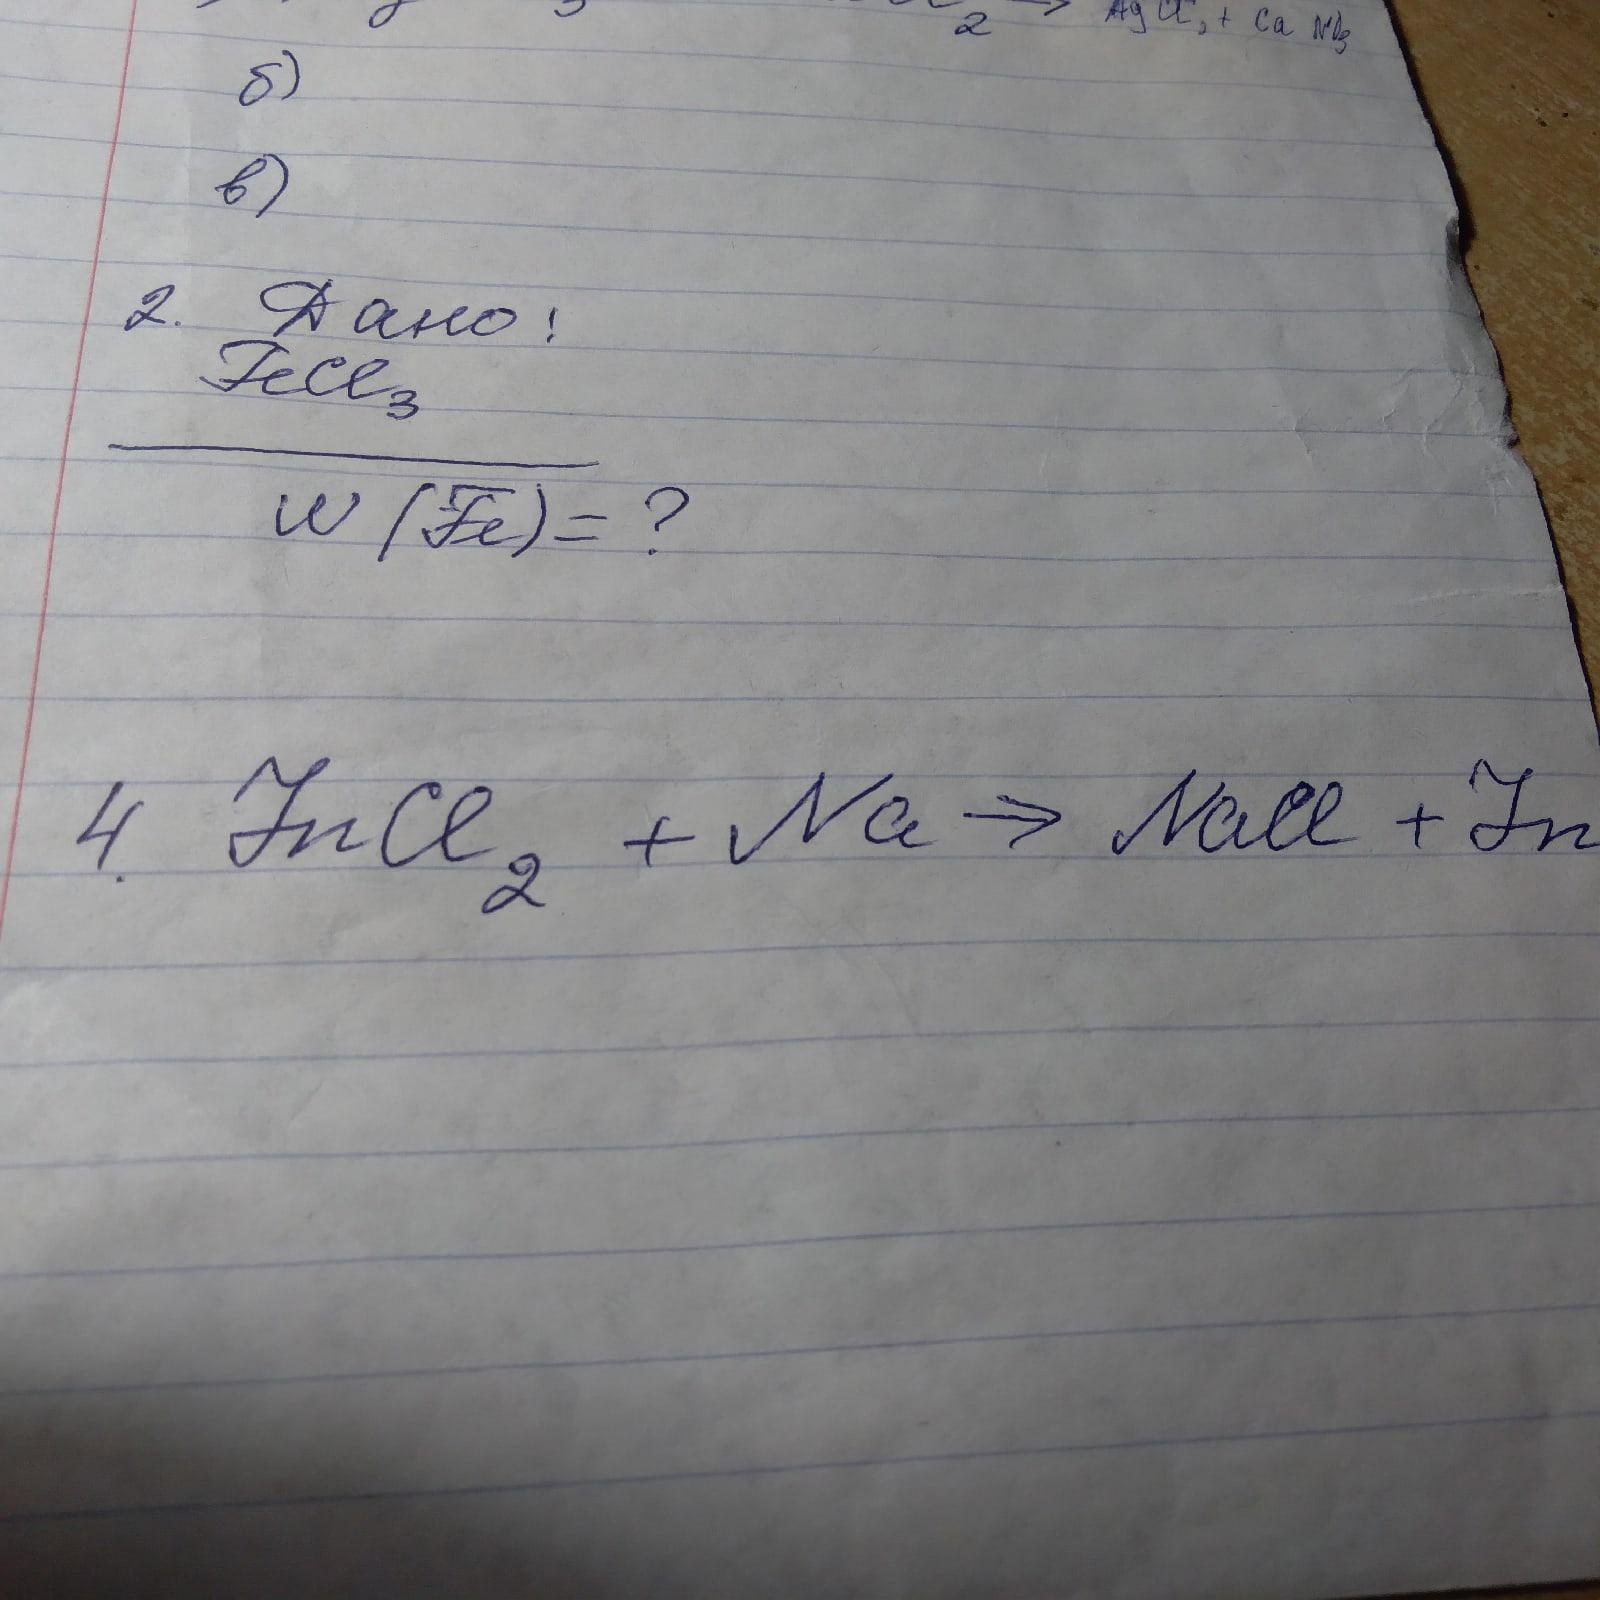 2 → AgCl, + Ca NO3
б)
в)
2. Дано:
FeCl3
W (Fe) = ?
4. ZnCl2 + Na → NaCl + Zn